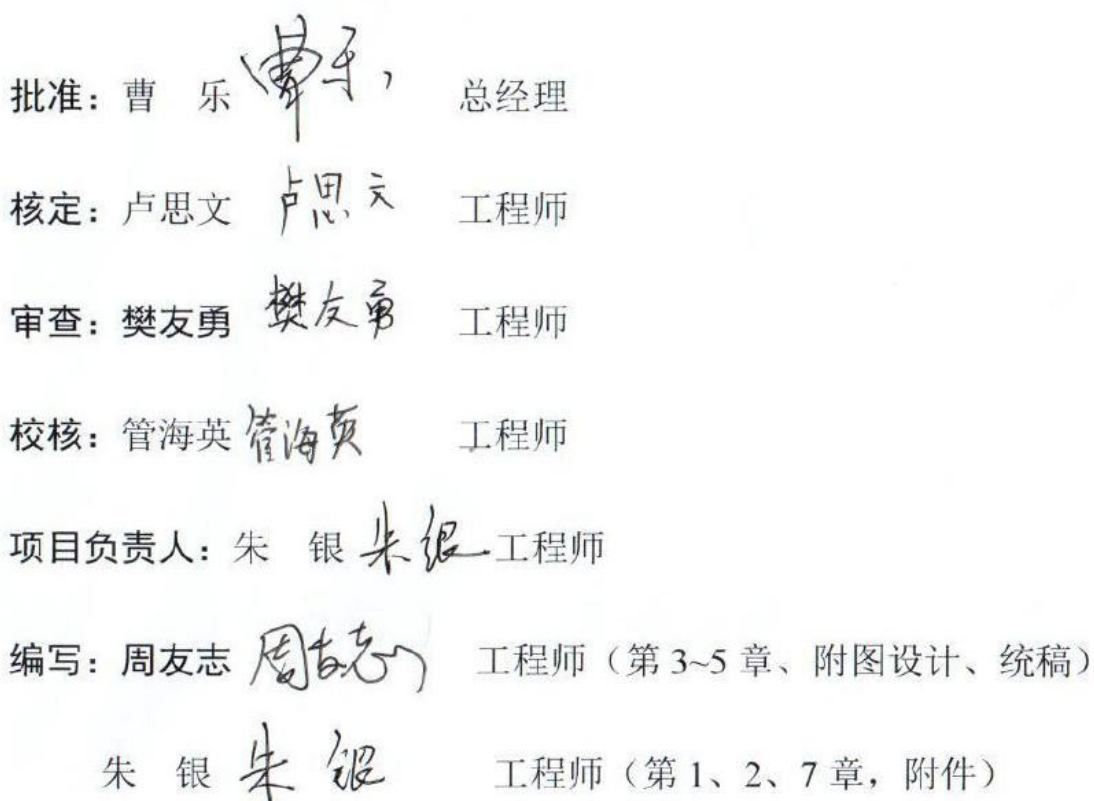 批准：曹 乐 曹乐， 总经理
核定：卢思文 卢思文 工程师
审查：樊友勇 樊友勇 工程师
校核：管海英 管海英 工程师
项目负责人：朱 银 朱银 工程师
编写：周友志 周友志 工程师（第 3~5 章、附图设计、统稿）
朱 银 朱银 工程师（第 1、2、7 章，附件）